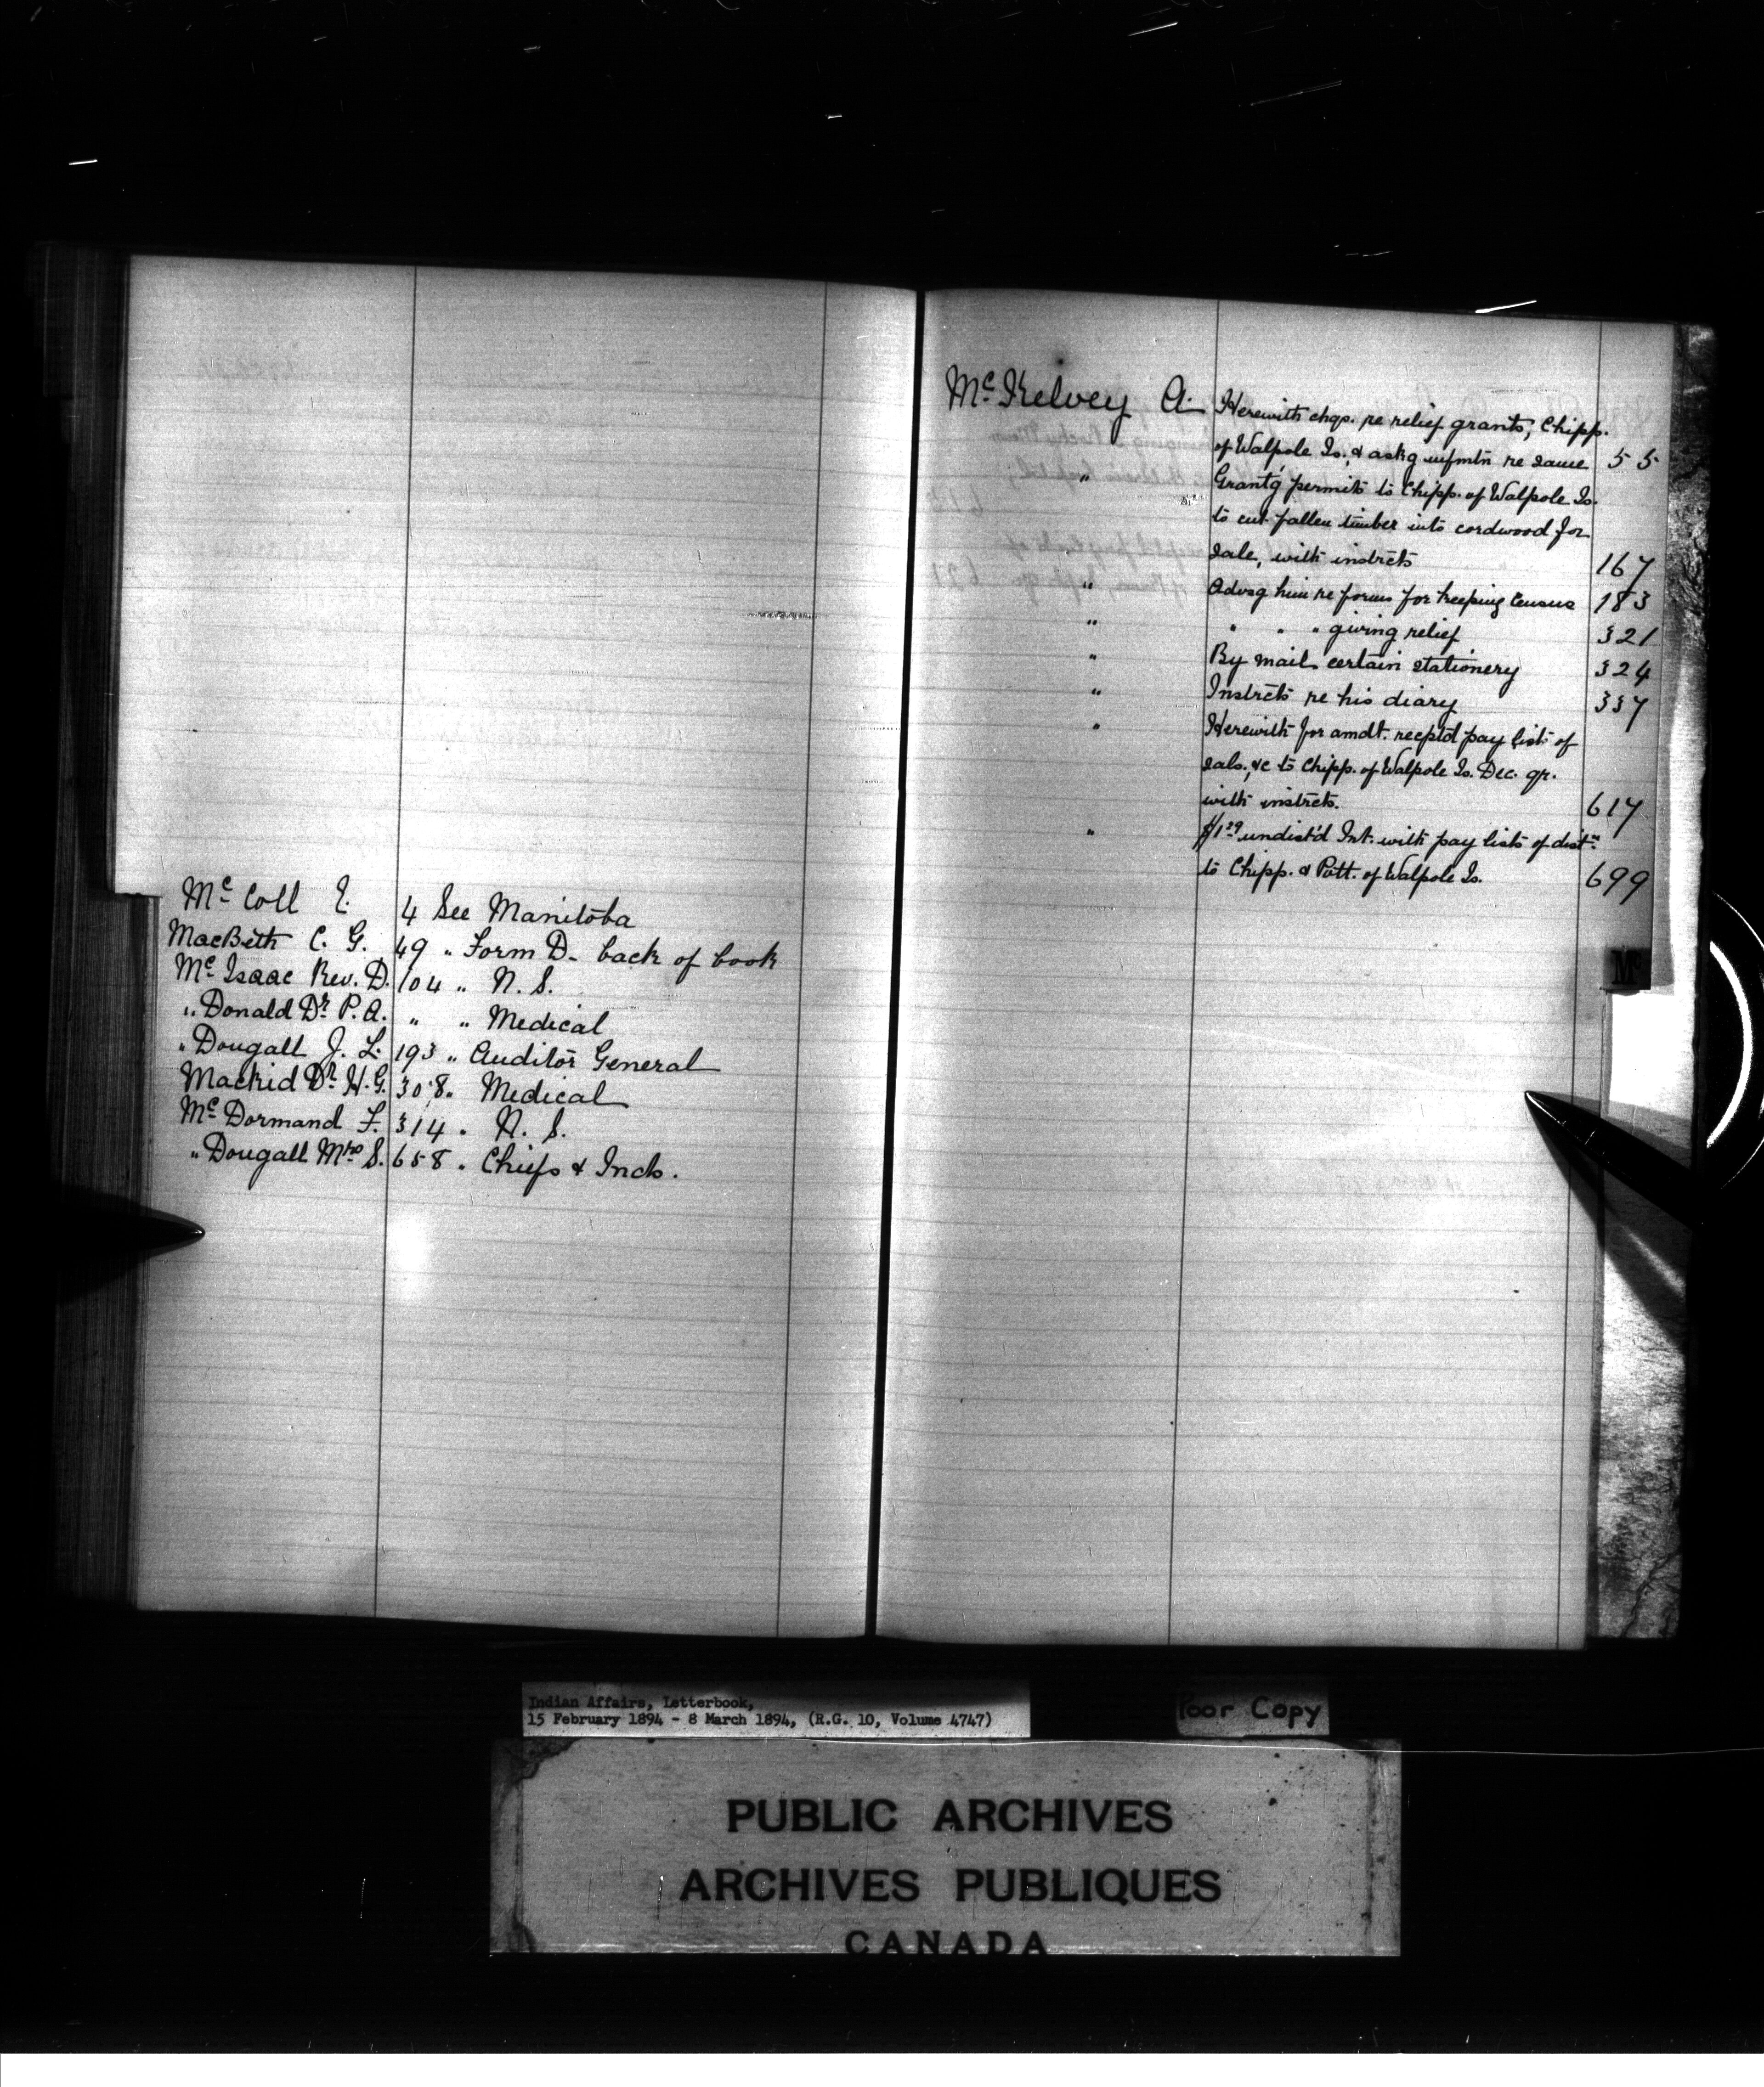 Mc Coll E. 4 See Manitoba
MacBeth C. G. 49 " Form D - back of book
Mc Isaac Rev. D. 104 " N. S.
" Donald Dr P. A. " " Medical
" Dougall J. L. 193 " Auditor General
Mackid Dr. H. G. 308 " Medical
Mc Dormand F. 314 " N. S.
" Dougall Mrs S. 658 " Chiefs & Inds.
Mc Kelvey A. Herewith chqs. re relief grants, Chipp.
of Walpole Is. & askg infmtn re same 55
" Grant'g permits to Chipp. of Walpole Is.
to cut fallen timber into cordwood for
sale, with instrcts 167
" Advsg him re forms for keeping Census 183
" " " " giving relief 321
" By mail certain stationery 324
" Instrcts re his diary 337
" Herewith for amdt. recptd pay list of
sals. &c to Chipp. of Walpole Is. Dec. qr.
with instrcts. 617
" $1.29 undist'd Int. with pay lists of distn.
to Chipp. & Pott. of Walpole Is. 699
Mc
Indian Affairs, Letterbook,
15 February 1894 - 8 March 1894, (R.G. 10, Volume 4747)
Poor Copy
PUBLIC ARCHIVES
ARCHIVES PUBLIQUES
CANADA